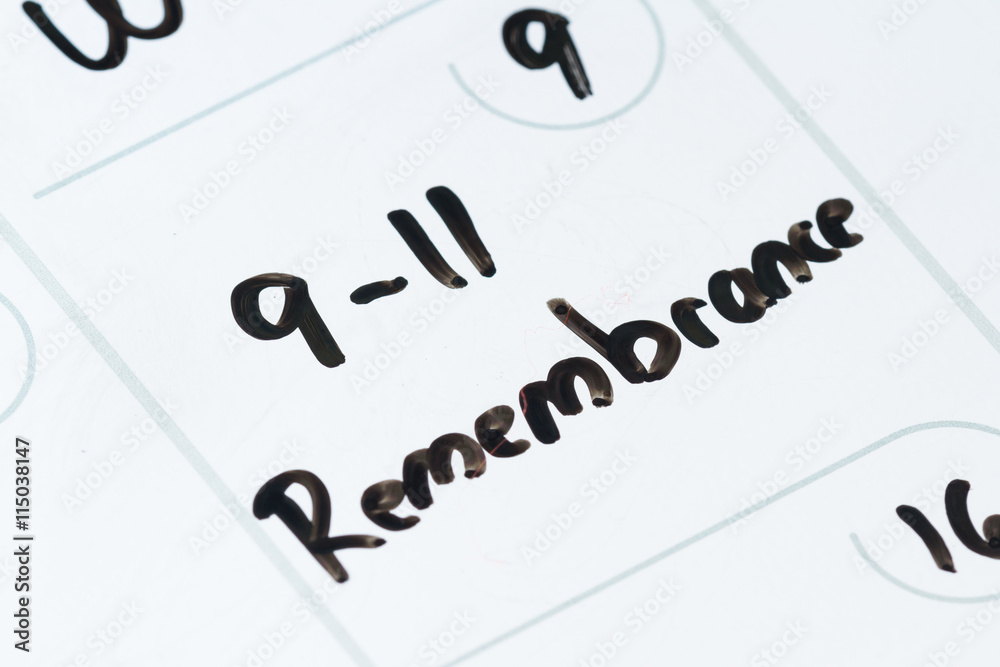 9
9-11
Remembrance
16
Adobe Stock | #115038147